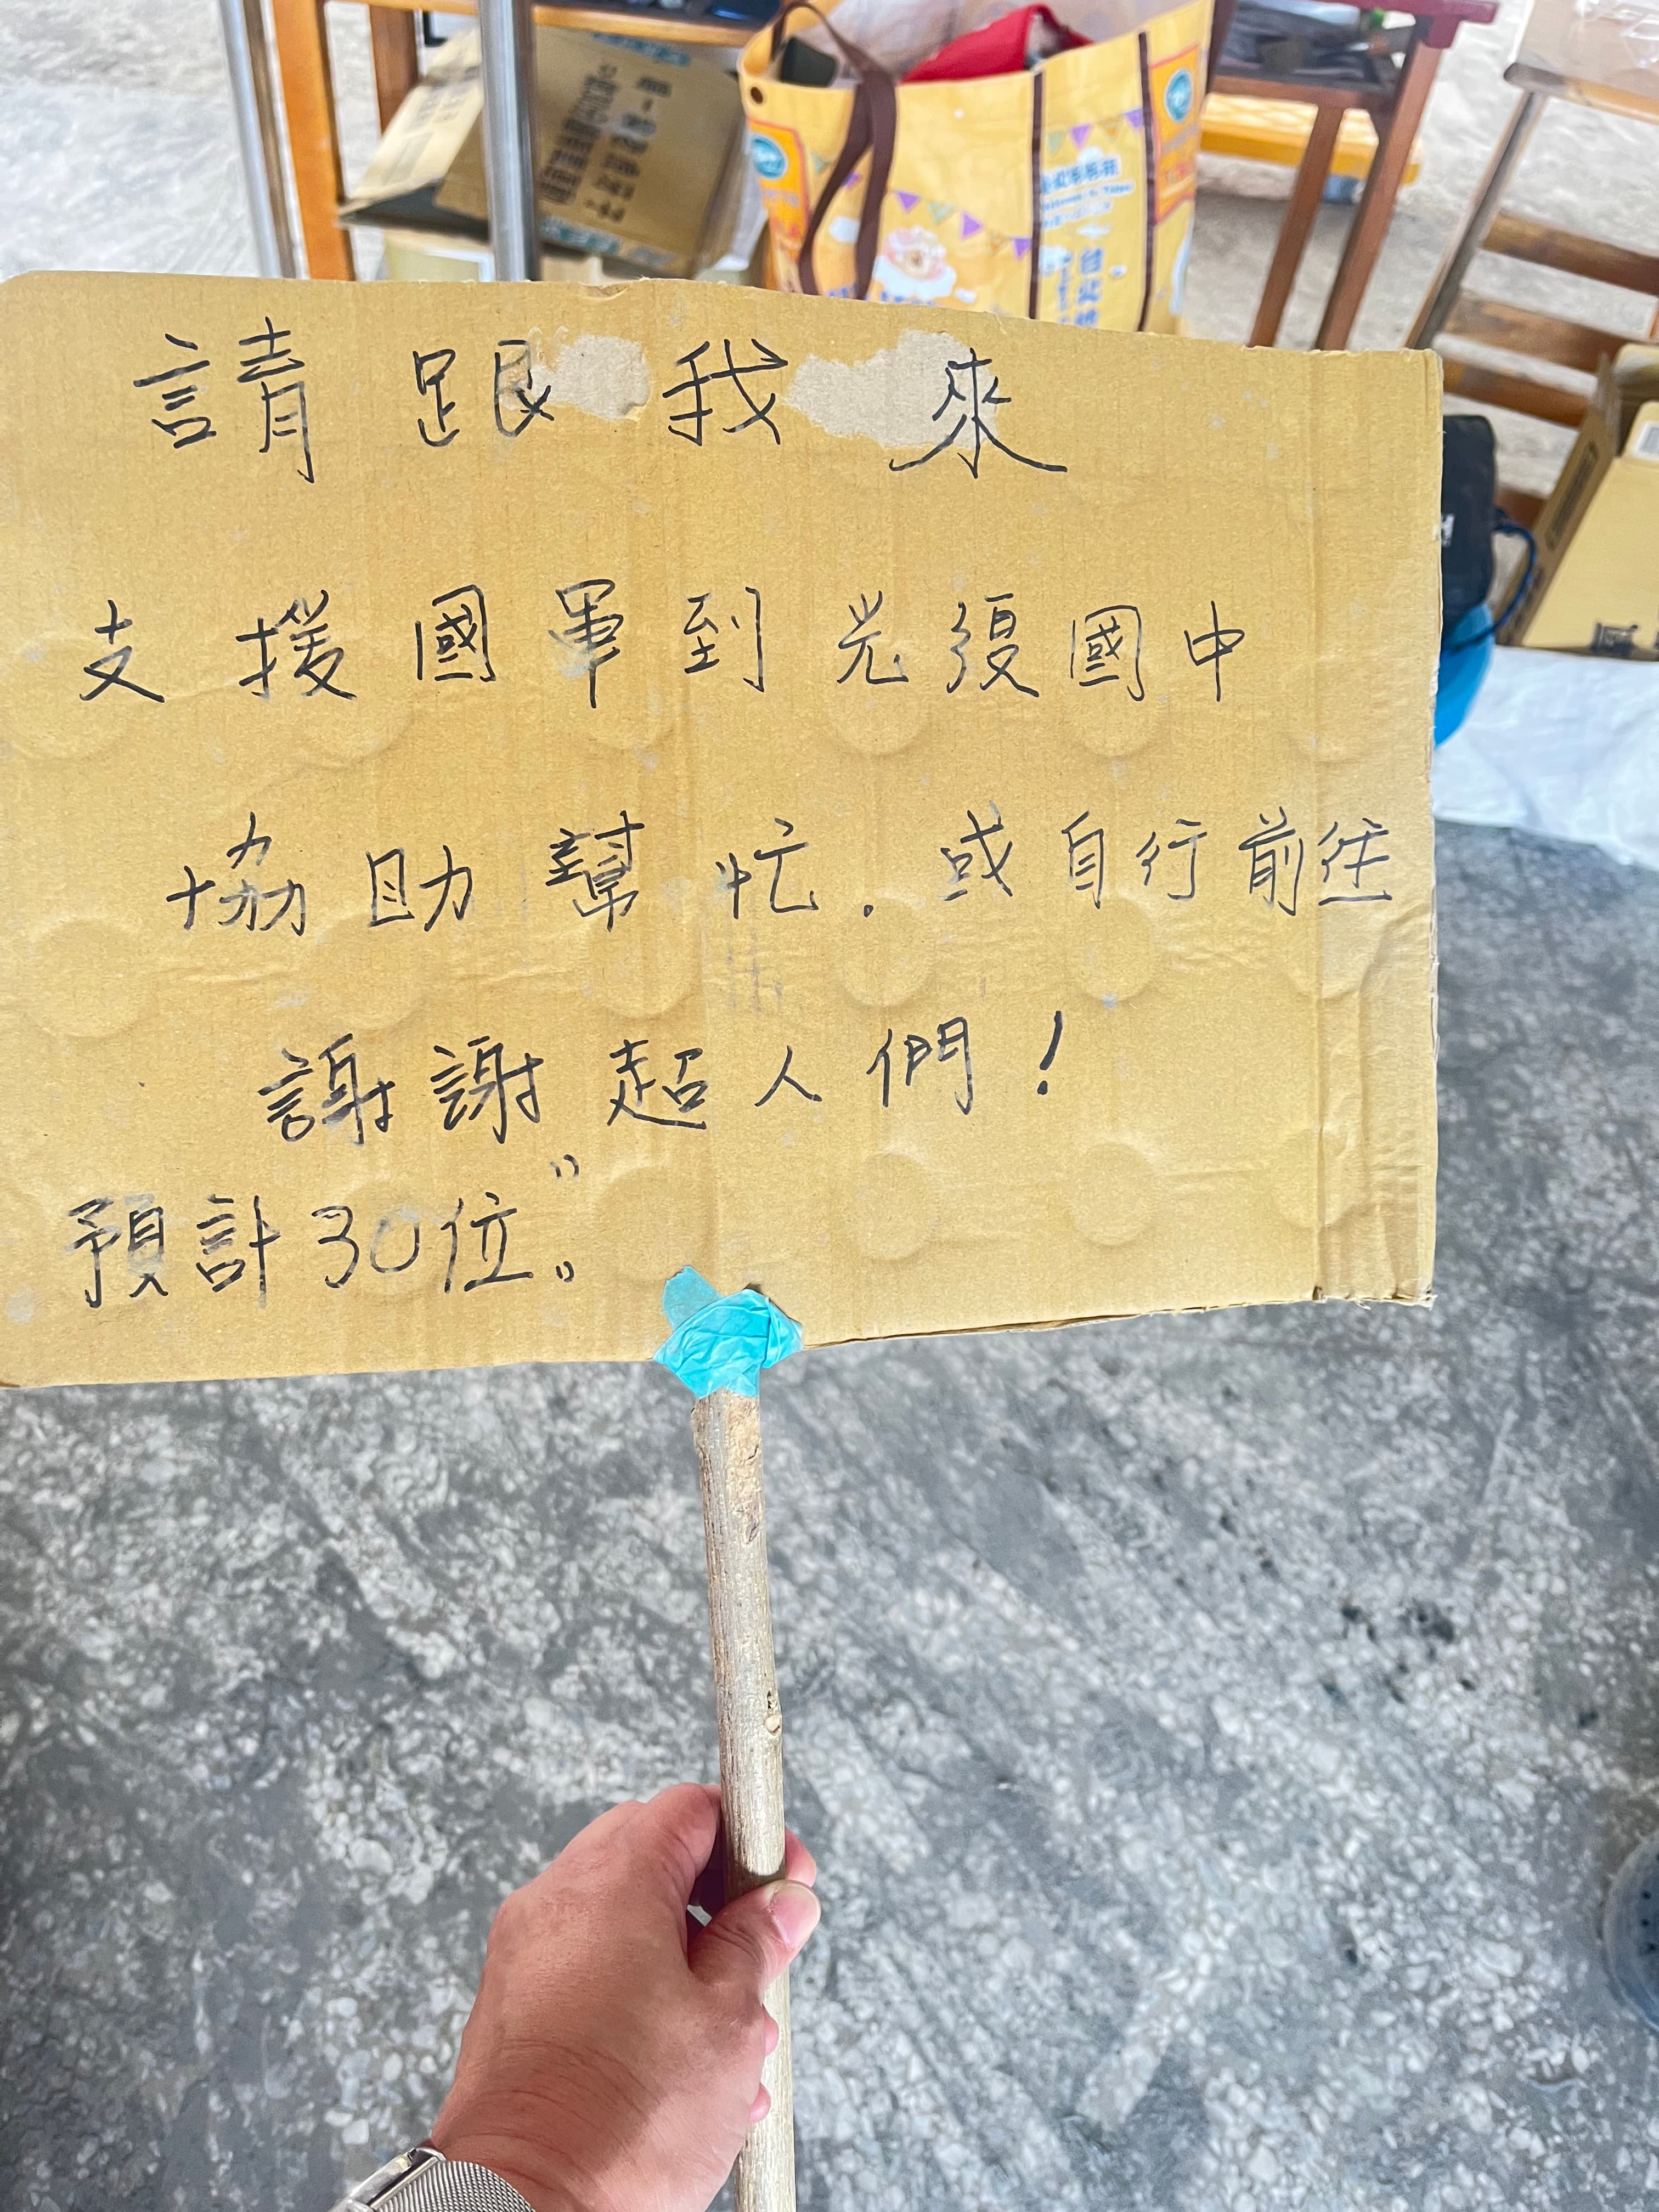 請跟我來
支援國軍到光復國中
協助幫忙.或自行前往
謝謝超人們!
預計30位。